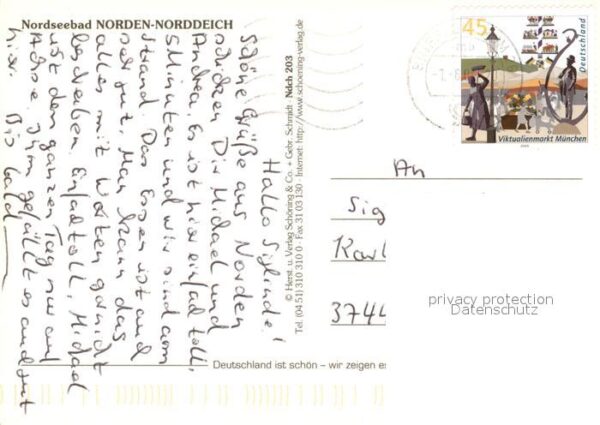 Nordseebad NORDEN-NORDDEICH
Hallo Siglinde!
Schöne Grüße aus Norden
schicken Dir Michael und
Andrea. Es ist hier einfach toll.
5 Minuten und wir sind am
Strand. Das Essen ist auch
sehr gut. Man kann das
alles mit Worten garnicht
beschreiben. Einfach toll. Michael
ist den ganzen Tag nur auf
Achse. Ihm gefällt es auch gut
hier. Bis bald
© Herst. u. Verlag Schöning & Co. + Gebr. Schmidt Ndch 203
Tel. (04 51) 310 310 0 · Fax 31 03 130 · Internet: http://www.schoening-verlag.de
45
Deutschland
Viktualienmarkt München
An
Sig
Karl
3744
privacy protection
Datenschutz
Deutschland ist schön – wir zeigen es